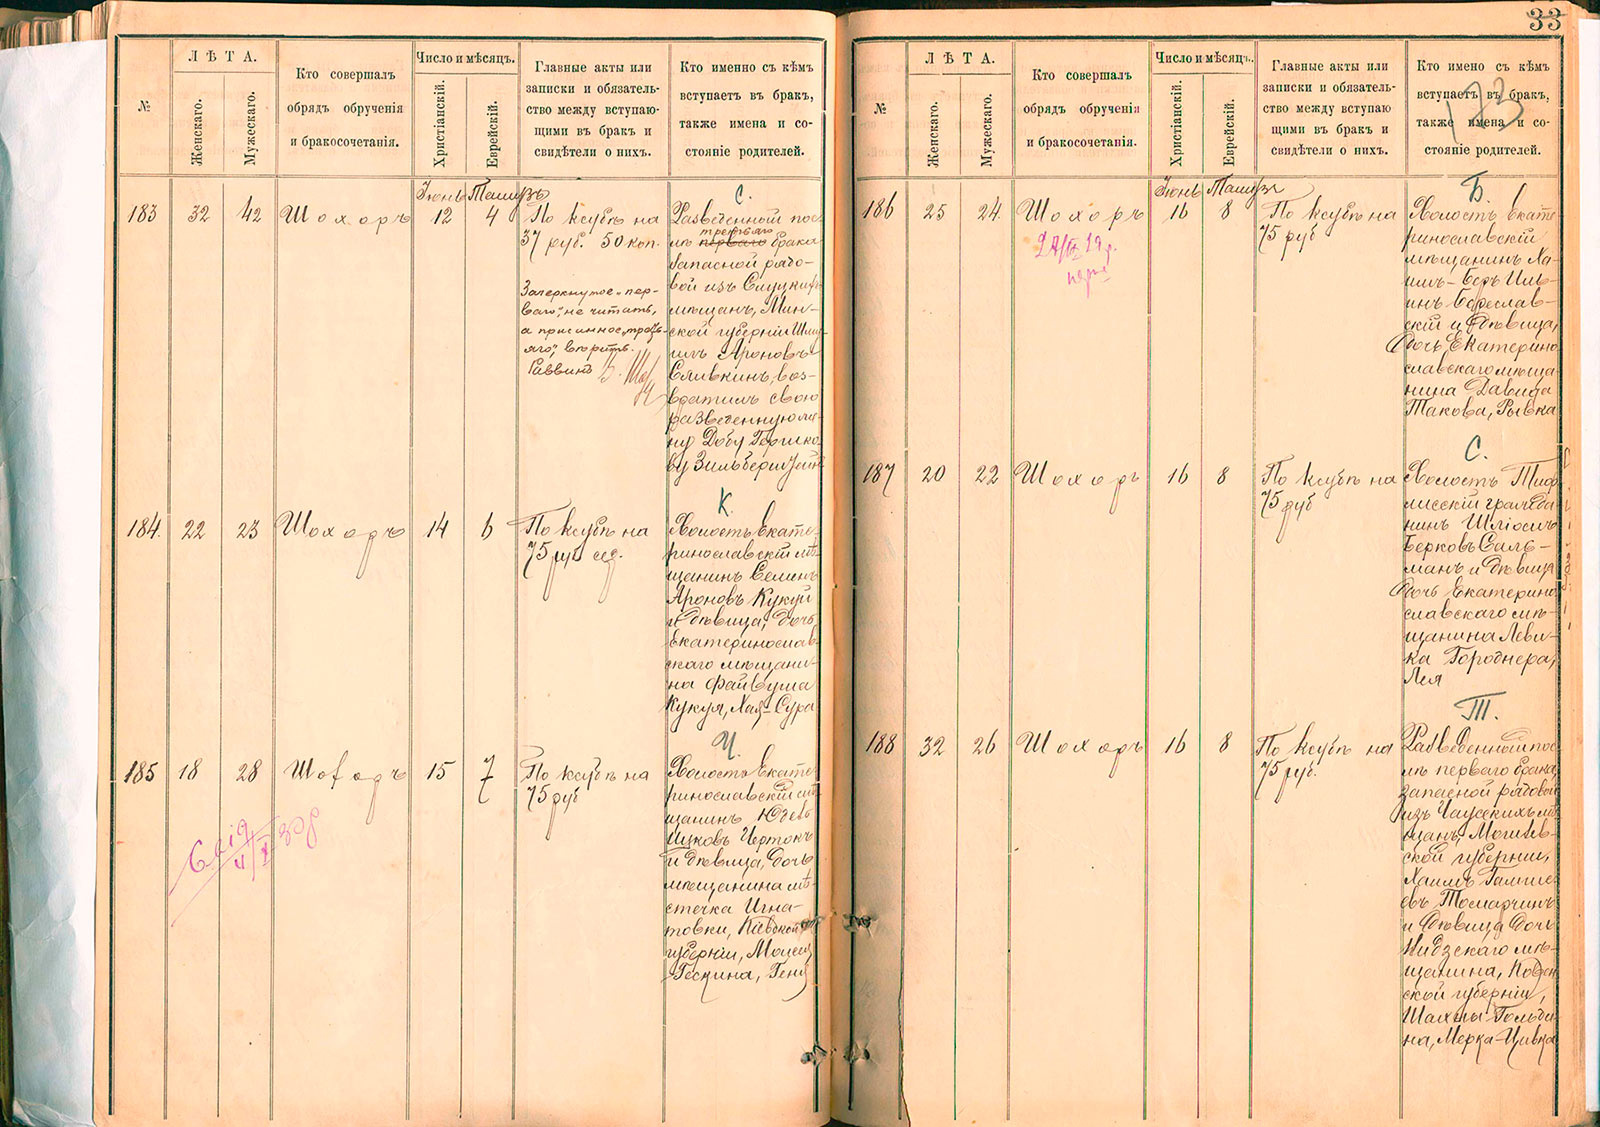 33
173
№
ЛѢТА.
Женскаго.
Мужескаго.
Кто совершалъ
обрядъ обрученія
и бракосочетанія.
Число и мѣсяцъ.
Христіанскій.
Еврейскій.
Главные акты или
записки и обязатель-
ство между вступаю-
щими въ бракъ и
свидѣтели о нихъ.
Кто именно съ кѣмъ
вступаетъ въ бракъ,
также имена и со-
стояніе родителей.
Іюнь Тамузъ
183 32 42 Шохоръ 12 4
По ксубѣ на
37 руб. 50 коп.
Зачеркнутое „пер-
ваго“, не читать,
вѣрить.
Раввинъ
С.
Разведенный пос-
третьяго
лѣ перваго брака
запасной рядо-
вой изъ Слуцкихъ
мѣщанъ, Мин-
ской губерніи Шму-
илъ Ароновъ
Сливкинъ, воз-
вратилъ свою
разведенную же-
ну Добу Гершко-
ву Зильберштейнъ
184. 22 23 Шохоръ 14 6
По ксубѣ на
75 руб сер.
К.
Холостъ Екате-
ринославскій мѣ-
щанинъ Семенъ
Ароновъ Кукуй
и дѣвица, дочь
Екатеринослав-
скаго мѣщани-
на Файвуша
Кукуя, Хая-Сура
185 18 28 Шохоръ 15 7
По ксубѣ на
75 руб
Ч.
Холостъ Екате-
ринославскій мѣ-
щанинъ
Ицковъ Чертокъ
и дѣвица, дочь
мѣщанина мѣ-
стечка Игна-
товки, Кіевской
губерніи, Моисея
№
ЛѢТА.
Женскаго.
Мужескаго.
Кто совершалъ
обрядъ обрученія
и бракосочетанія.
Число и мѣсяцъ.
Христіанскій.
Еврейскій.
Главные акты или
записки и обязатель-
ство между вступаю
щими въ бракъ и
свидѣтели о нихъ.
Кто имено съ кѣмъ
вступаетъ въ бракъ,
также имена и со-
стояніе родителей.
Іюнь Тамузъ
186 25 24. Шохоръ 16 8
По ксубѣ на
75 руб
Б.
Холостъ Екате-
ринославскій
мѣщанинъ Ха-
имъ-Беръ Иль-
инъ Береслав-
скій и дѣвица,
дочь Екатерино
славскаго мѣща-
нина Давида
Такова, Рывка
187 20 22 Шохоръ 16 8
По ксубѣ на
75 руб
С.
Холостъ Тиф-
лисскій гражда-
нинъ
Берковъ Саль-
манъ и дѣвица
дочь Екатерино
славскаго мѣ-
щанина Леви-
ка Городнера,
Лея
188 32 26 Шохоръ 16 8
По ксубѣ на
75 руб.
Т.
Разведенный пос-
лѣ перваго брака,
запасной рядовой
изъ Чаусскихъ мѣ-
щанъ, Могилев-
ской губерніи,
Хаимъ
овъ Томарчинъ
и дѣвица, дочь
Видзскаго мѣ-
щанина, Ковен
ской губерніи,
Шахны Гольди-
на, Мерка-Цивка